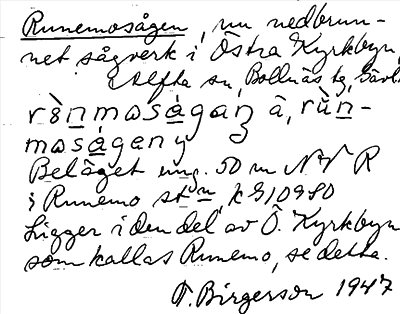 Runemosågen, nu nedbrun-
net sågverk i Östra Kyrkbyn,
Alfta sn, Bollnäs tg, Gävl
rè̀n̲mosá̲gaɳ â, rǜn̲-
mosá̲gan
Beläget ung. 50 m NV R
i Runemo st:n,
Ligger i den del av Ö. Kyrkbyn
som kallas Runemo, se detta.
F. Birgerson 1947